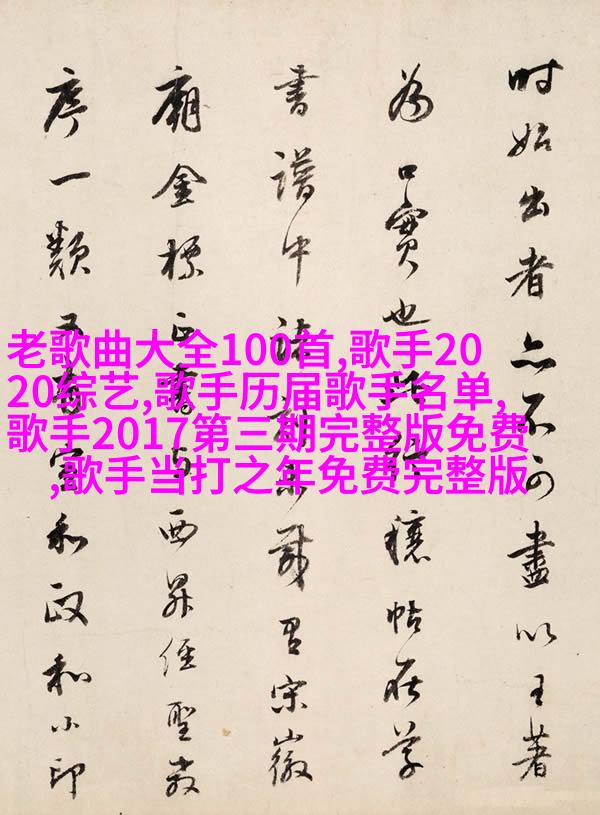 时始出者亦不可盡以王著
为口實也穰帖在
書譜中宋徽
廟金標正西昇经聖教
序一類宣和政和小印
老歌曲大全100首,歌手20
20综艺,歌手历届歌手名单,
歌手2017第三期完整版免费
,歌手当打之年免费完整版